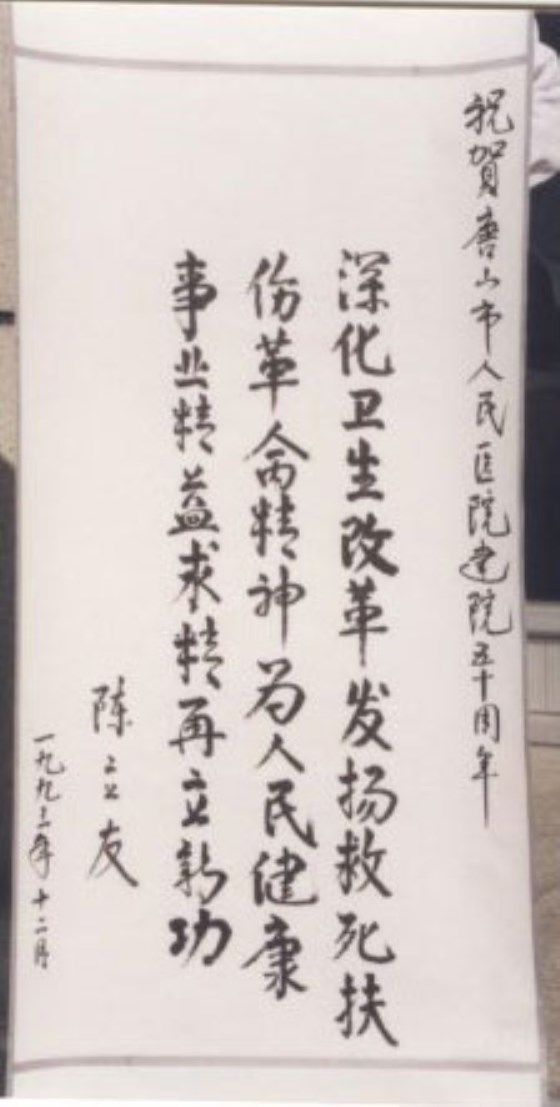 祝贺唐山市人民医院建院五十周年
深化卫生改革发扬救死扶
伤革命精神为人民健康
事业精益求精再立新功
陈立友
一九九三年十二月